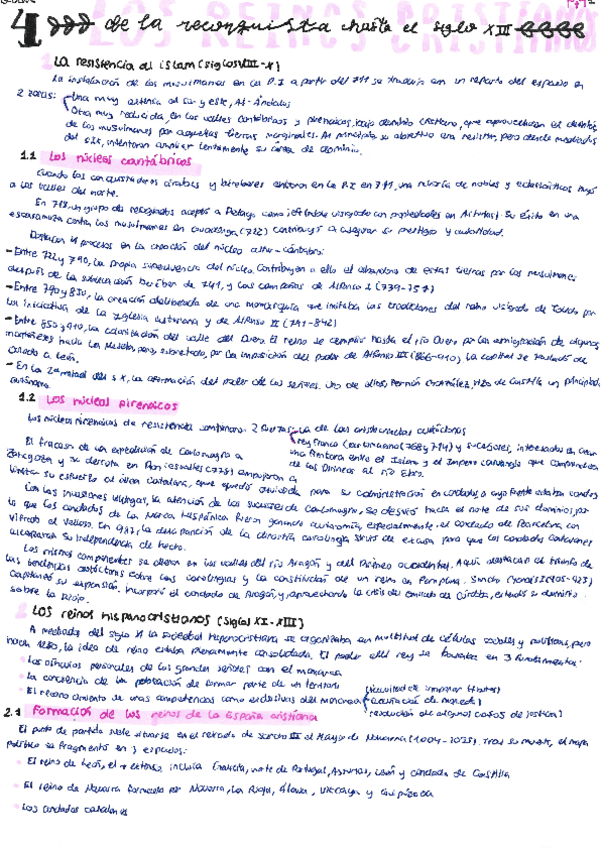 LOS REINOS CRISTIANOS
4 de la reconquista hasta el siglo XIII
1 La resistencia al islam (siglos VIII-X)
La instalación de los musulmanes en la P.I a partir del 711 se tradujo en un reparto del espacio en
2 zonas: Una muy extensa al sur y este, Al-Ándalus
Otra muy reducida, en los valles cantábricos y pirenaicos, bajo dominio cristiano, que aprovecharon el
de los musulmanes por aquellas tierras marginales. Al principio su objetivo era resistir, pero desde mediados
del s.IX, intentaron ampliar lentamente su área de dominio.
1.1 Los núcleos cantábricos
Cuando los conquistadores árabes y bereberes entraron en la P.I en 711, una minoría de nobles y eclesiásticos huyó
a los valles del norte.
En 718, un grupo de refugiados aceptó a Pelayo como jefe visigodo con propiedades en Asturias. Su éxito en una
escaramuza contra los musulmanes en Covadonga (722) contribuyó a asegurar su prestigio y autoridad.
Destacan 4 procesos en la creación del núcleo astur-cántabro:
- Entre 722 y 790, la propia supervivencia del núcleo. Contribuyen a ello el abandono de estas tierras por los musulmanes
después de la sublevación bereber de 741, y las campañas de Alfonso I (739-757)
- Entre 790 y 850, la creación deliberada de una monarquía que imitaba las tradiciones del reino visigodo de Toledo por
la iniciativa de la iglesia asturiana y de Alfonso II (791-842)
- Entre 850 y 910, la colonización del valle del Duero. El reino se amplió hasta el río Duero por la emigración de algunos
montañeses hacia la Meseta, pero, sobre todo, por la imposición del poder de Alfonso III (866-910). La capital se trasladó de
Oviedo a León.
- En la 2ª mitad del s.X, la afirmación del poder de los señores. Uno de ellos, Fernán González, hizo de Castilla un principado
autónomo.
1.2 Los núcleos pirenaicos
Los núcleos pirenaicos de resistencia combinaron 2 fuerzas: La de las aristocracias autóctonas
Rey franco (Carlomagno (768 y 814) y sucesores, interesados en crear
una frontera entre el Islam y el Imperio carolingio que comprendiera
de los Pirineos al río Ebro.
El fracaso de una expedición de Carlomagno a
Zaragoza y su derrota en Roncesvalles (778) empujaron a
limitar su esfuerzo al área catalana, que quedó dividida para su administración en condados a cuyo frente estaban condes
Con las invasiones vikingas, la atención de los sucesores de Carlomagno, se desvió hacia el norte de sus dominios, por
lo que los condados de la Marca Hispánica fueron ganando autonomía, especialmente, el condado de Barcelona, con
Vifredo el Velloso. En 987, la desaparición de la dinastía carolingia sirvió de excusa para que los condados catalanes
alcanzaran su independencia de hecho.
Los mismos componentes se dieron en los valles del río Aragón y del Pirineo occidental. Aquí destacan el triunfo de
las tendencias autóctonas sobre las carolingias y la constitución de un reino en Pamplona. Sancho Garcés I (905-925)
capitaneó su expansión. Incorporó el condado de Aragón, y, aprovechando la crisis del emirato de Córdoba, extendió su dominio
sobre la Rioja.
2 Los reinos hispanocristianos (siglos XI-XIII)
A mediados del siglo XI la sociedad hispanocristiana se organizaba en multitud de células sociales y políticas, pero
hacia 1250, la idea de reino estaba plenamente consolidada. El poder del rey se basaba en 3 fundamentos:
• Los vínculos personales de los grandes señores con el monarca
• La conciencia de la población de formar parte de un territorio
• El reconocimiento de unas competencias como exclusivas del monarca (facultad de imponer tributos)
(acuñación de moneda)
(resolución de algunos casos de justicia)
2.1 Formación de los reinos de la España cristiana
El punto de partida suele situarse en el reinado de Sancho III el Mayor de Navarra (1004-1035). Tras su muerte, el mapa
político se fragmentó en 3 espacios:
• El reino de León, el + extenso, incluía Galicia, norte de Portugal, Asturias, León y condado de Castilla
• El reino de Navarra formado por Navarra, La Rioja, Álava, Vizcaya y Guipúzcoa
• Los condados catalanes